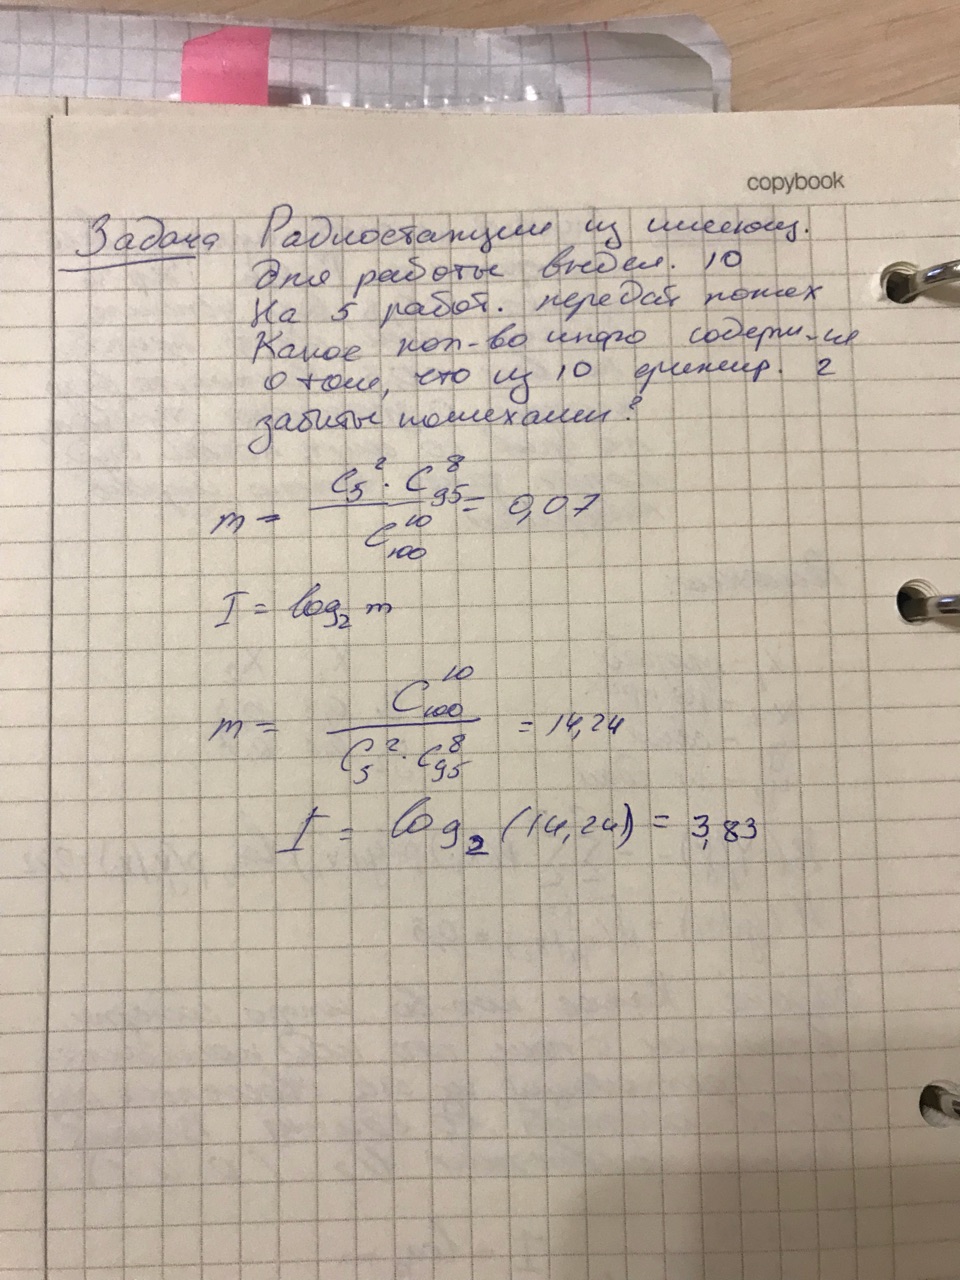 copybook
Задача Радиостанции из имеющ.
для работы выдел. 10
На 5 работ. передат помех
Какое кол-во инфо содерж-ся
о том, что из 10 фикмир. 2
забиты помехами?
m = C₅² · C₉₅⁸ / C₁₀₀¹⁰ = 0,07
I = log₂ m
m = C₁₀₀¹⁰ / C₅² · C₉₅⁸ = 14,24
I = log₂ (14,24) = 3,83